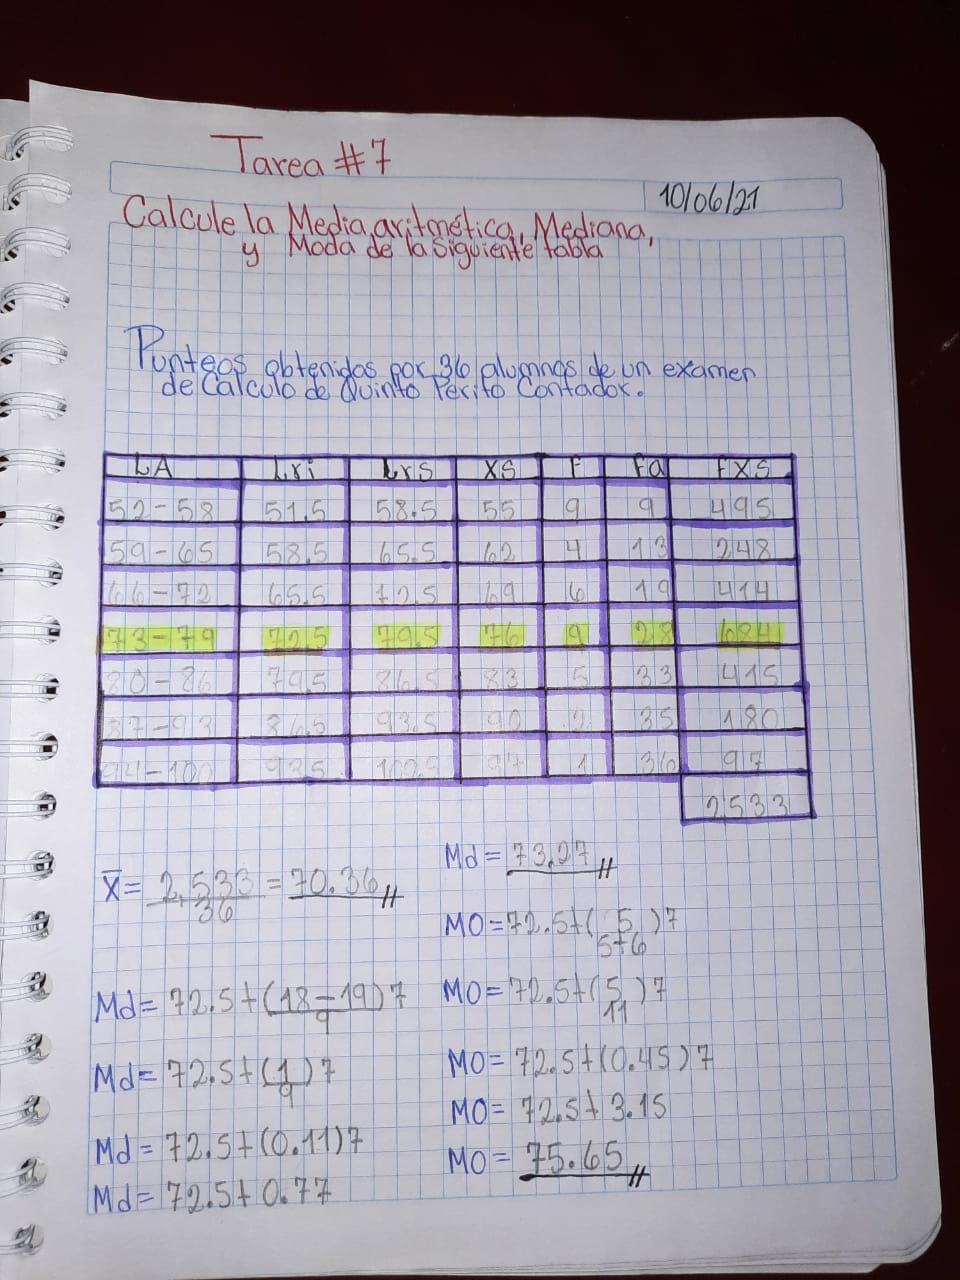 Tarea #7
10/06/21
Calcule la Media aritmética, Mediana,
y Moda de la siguiente tabla
Punteos obtenidos por 36 alumnos de un examen
de Calculo de Quinto Perito Contador.
LA Lri Lrs XS F Fa FXS
52-58 51.5 58.5 55 9 9 495
59-65 58.5 65.5 62 4 13 248
66-72 65.5 72.5 69 6 19 414
73-79 72.5 79.5 76 9 28 684
80-86 79.5 86.5 83 5 33 415
87-93 86.5 93.5 90 2 35 180
94-100 93.5 97 1 36 97
2533
X̅= 2,533 = 70.36
36
Md= 72.5+(18-19)7
9
Md= 72.5+(1)7
9
Md= 72.5+(0.11)7
Md= 72.5+ 0.77
Md= 73.27
MO=72.5+( 5 )7
5+6
MO=72.5+(5 )7
11
MO= 72.5+(0.45)7
MO= 72.5+ 3.15
MO= 75.65